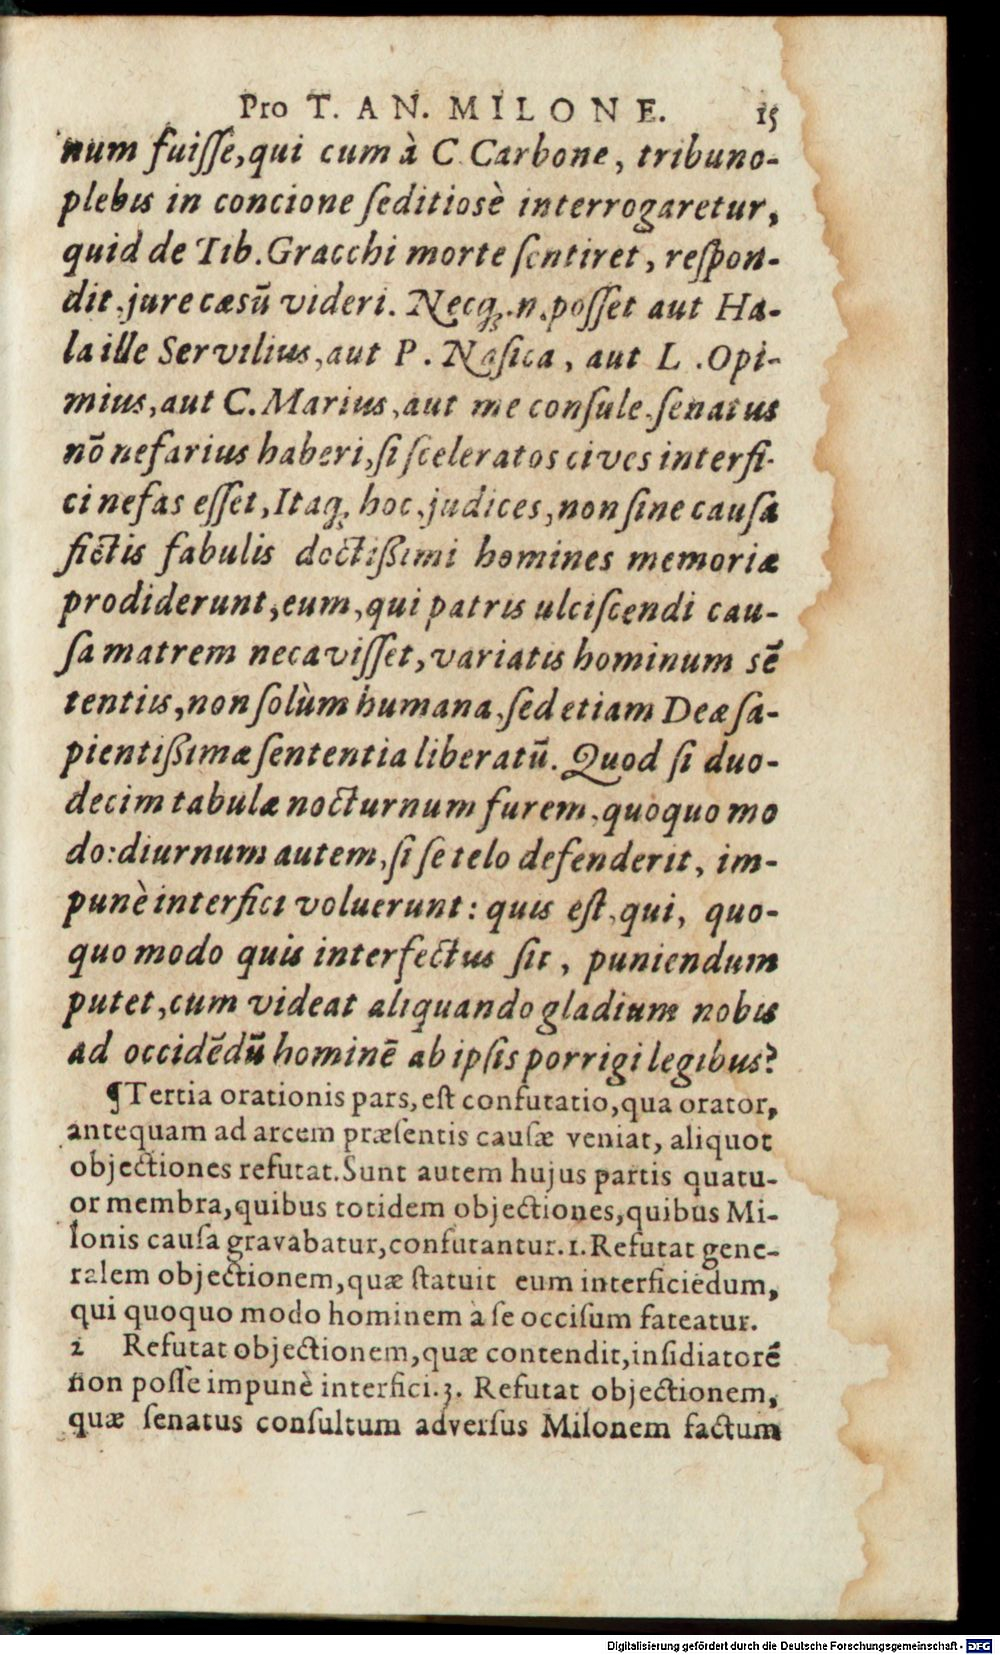 Pro T. AN. MILONE. 15
num fuiſſe, qui cum à C Carbone, tribuno-
plebis in concione ſeditiosè interrogaretur,
quid de Tib. Gracchi morte ſentiret, reſpon-
dit, jure cæsū videri. Necq́;. n. poſſet aut Ha-
la ille Servilius, aut P. Naſica, aut L. Opi-
mius, aut C. Marius, aut me conſule, ſenatus
nō nefarius haberi, ſi ſceleratos cives interfi-
ci nefas eſſet, Itaq; hoc, judices, non ſine cauſa
fictis fabulis doctißimi homines memoriæ
prodiderunt, eum, qui patris ulciſcendi cau-
ſa matrem necaviſſet, variatis hominum sē
tentiis, non ſolùm humana, ſed etiam Deæ ſa-
pientißimæ ſententia liberatū. Quod ſi duo-
decim tabulæ nocturnum furem, quoquo mo
do: diurnum autem, ſi ſe telo defenderit, im-
punè interfici voluerunt: quis eſt, qui, quo-
quo modo quis interfectus ſit, puniendum
putet, cum videat aliquando gladium nobis
ad occidēdū hominē ab ipſis porrigi legibus?
¶Tertia orationis pars, eſt confutatio, qua orator,
antequam ad arcem præſentis cauſæ veniat, aliquot
objectiones refutat. Sunt autem hujus partis quatu-
or membra, quibus totidem objectiones, quibus Mi-
lonis cauſa gravabatur, confutantur. 1. Refutat gene-
ralem objectionem, quæ ſtatuit eum interficiēdum,
qui quoquo modo hominem à ſe occiſum fateatur.
2 Refutat objectionem, quæ contendit, inſidiatorē
non poſſe impunè interfici. 3. Refutat objectionem,
quæ ſenatus conſultum adverſus Milonem factum
Digitalisierung gefördert durch die Deutsche Forschungsgemeinschaft - DFG